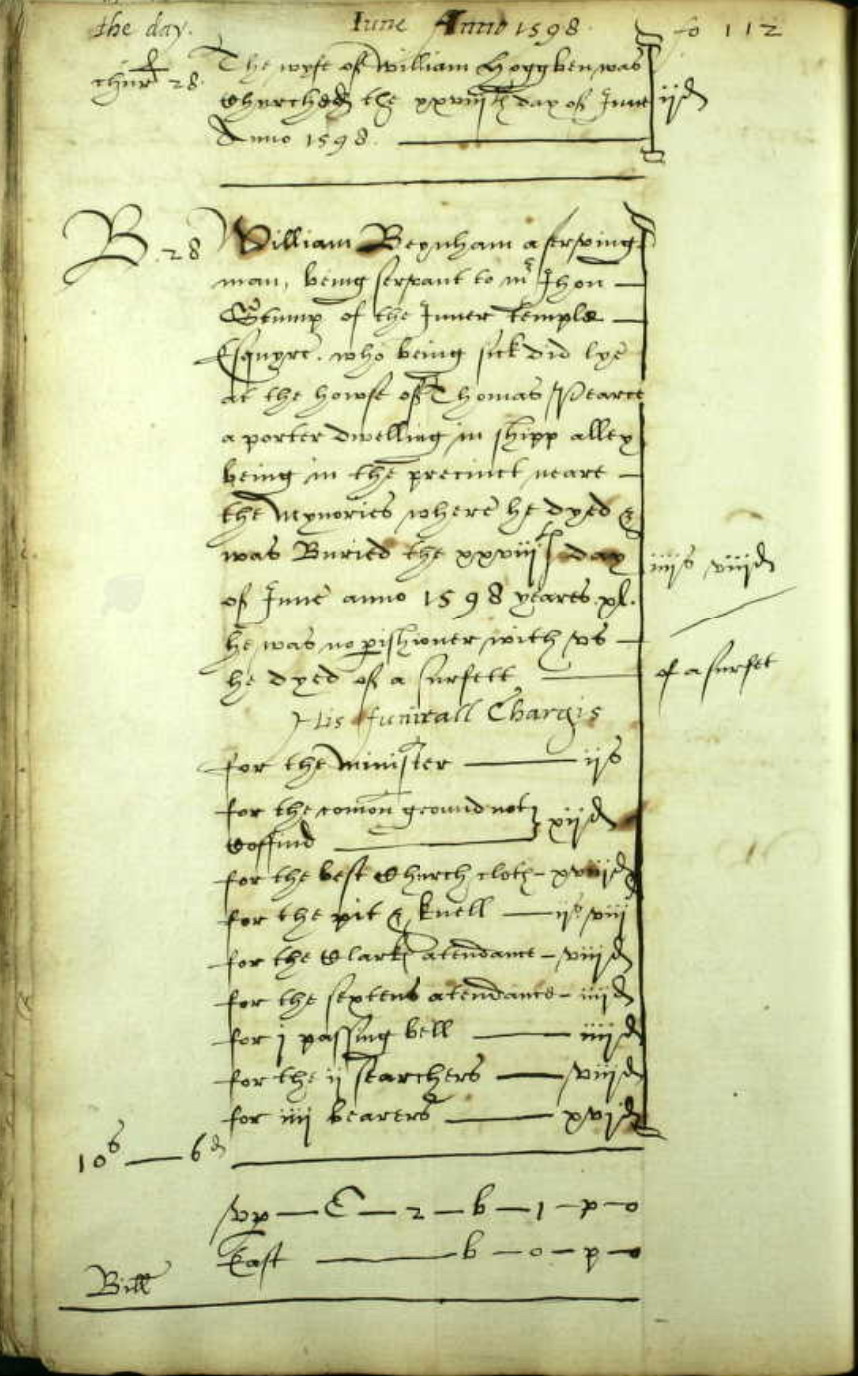 the day. June Anno 1598 fo 112
chur 28 The wyfe of William Hoggben was
Churched the xxviijth day of June ijd
Anno 1598.
B. 28 William Beynham a serving
man, being servant to mr Jhon
Stump of the Inner temple
Esquyre. who being sick did lye
at the howse of Thomas Pearce
a porter dwelling in shipp alley
being in the precinct neare
the Mynories where he dyed &
was Buried the xxviijth day iiijs viijd
of June anno 1598 yeares xl.
he was no pishioner with vs
he dyed of a surfett of a surfet
His funirall Chargis
for the minister ijs
for the comon ground not xijd
Coffind
for the best Church cloth - xviijd
for the pit & knell ijs viij
for the Clarks atendance - viijd
for the sextens atendance - iiijd
for j passing bell iiijd
for the ij searchers viijd
for iiij bearers xvjd
10s — 6d
vp — C — 2 — b — 1 — p — o
East b — o — p — o
Bill